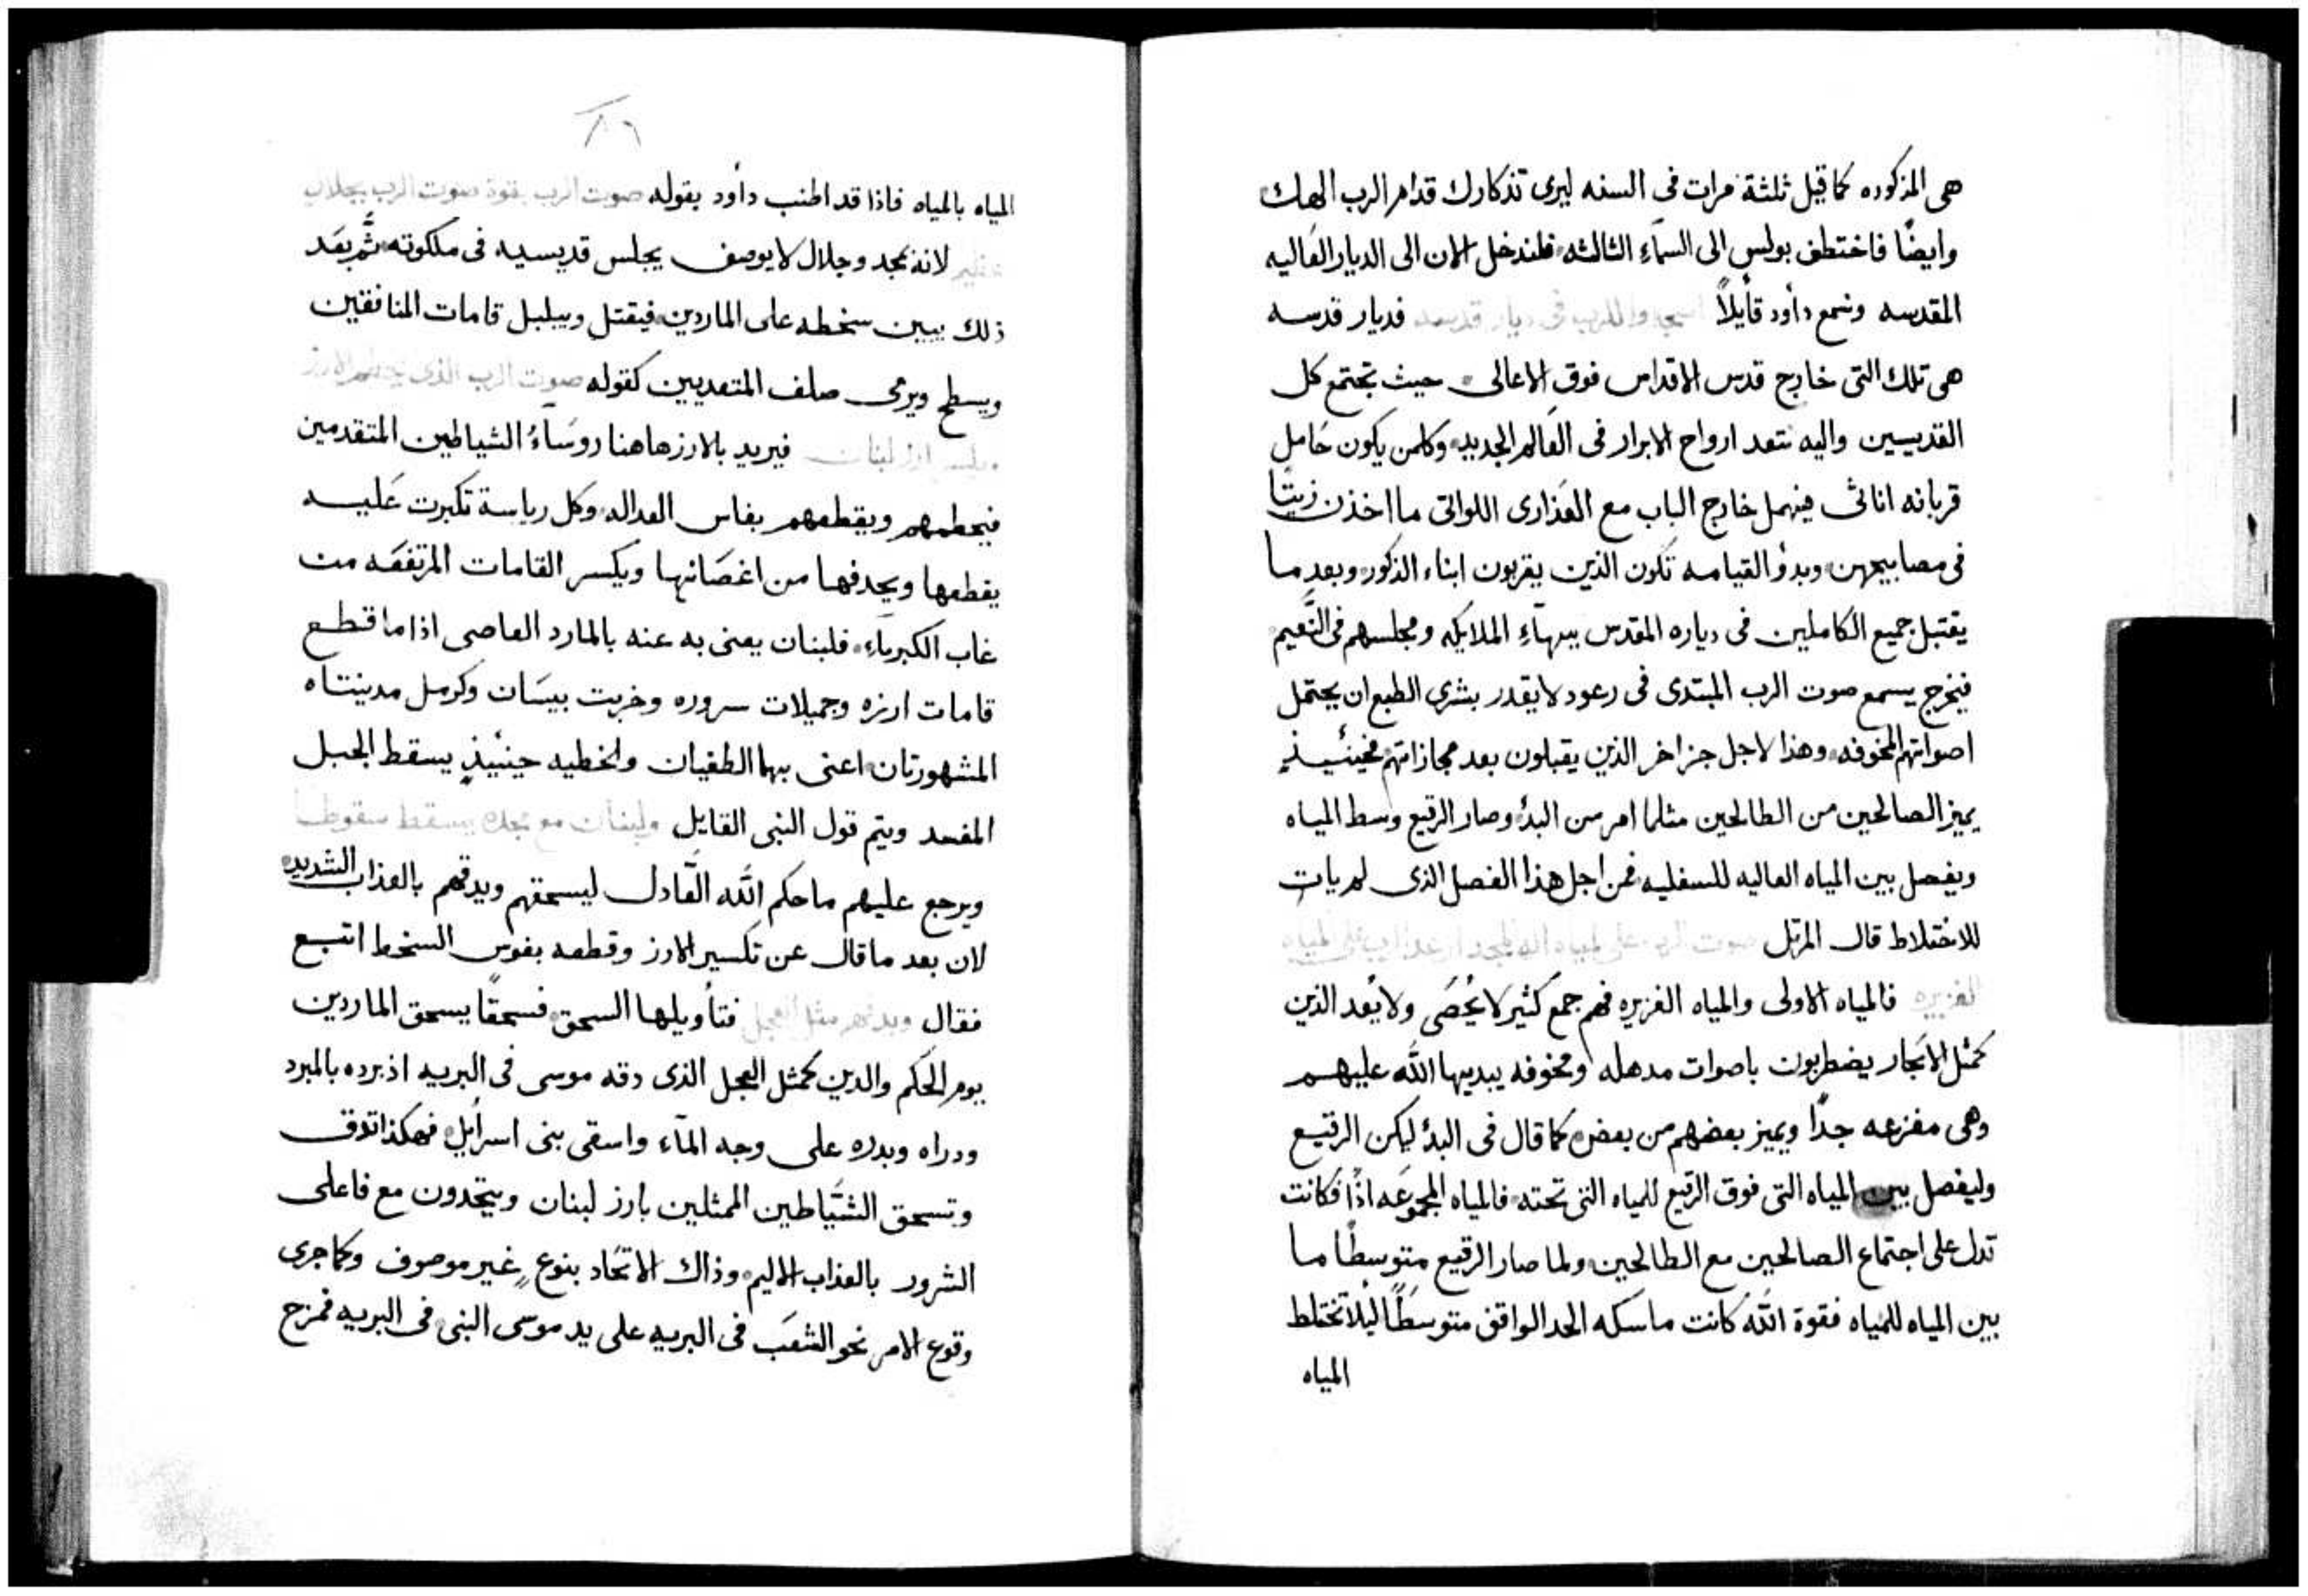 هى المذكوره كما قيل ثلثة مرات فى السنه ليرى تذكارك قدام الرب الهك
وايضًا فاختطف بولس الى السمآء الثالثه فلندخل الان الى الديار العاليه
المقدسه ونسمع دأود قأيلاً اسجدوا للرب فى ديار قدسه فديار قدسه
هى تلك التى خارج قدس الاقداس فوق الاعالى حيث تجتمع كل
القديسين واليه تتعد ارواح الابرار فى العالم الجديد وكلمن يكون حَامل
قربانه اناثى فيهمل خارج الباب مع العذارى اللواتى ما اخذن زيتًا
فى مصابيحهن وبدؤ القيامه تكون الذين يقربون ابناء الذكور وبعد ما
يقتبل جميع الكاملين فى دياره المقدس ببهآء الملايكه ومجلسهم فى النَّعيم
فيخرج يسمع صوت الرب المبتدى فى رعود لا يقدر بشرى الطبع ان يحتمل
اصواتهم المخوفه وهذا لاجل جزا خر الذين يقبلون بعد مجازاتهم فحينئيذٍ
يميز الصالحين من الطالحين مثلما امر من البدؤ وصار الرقيع وسط المياه
ويفصل بين المياه العاليه للسفليه فمن اجل هذا الفصل الذى لم يات
للاختلاط قال المرتل صوت الرب على المياه اله المجد ارعد الرب على المياه
الغزيره فالمياه الاولى والمياه الغزيره فهم جمع كثير لا يُحصَى ولا يُعد الذين
كمثل الابحار يضطربون باصوات مدهله ومخوفه يبديها اللّه عليهم
وهى مفزعه جدًا ويميز بعضهم من بعض كما قال فى البدؤ ليكن الرقيع
وليفصل بين المياه التى فوق الرقيع للمياه التى تحته فالمياه المجموعَه اذًا فكانت
تدل على اجتماع الصالحين مع الطالحين ولما صار الرقيع متوسطًا ما
بين المياه للمياه فقوة اللّه كانت ماسكه الحد الواقف متوسَطًا ليلا تختلط
المياه
٨٦
المياه بالمياه فاذا قد اطنب دأود بقوله صوت الرب بقوة صوت الرب بجلال
عظيم لانه بمجد وجلال لا يوصف يجلس قديسيه فى ملكوته ثُمَّ بعَد
ذلك يبين سخطه على الماردين فيقتل ويبلبل قامات المنافقين
ويسطح ويرمى صلف المتعديين كقوله صوت الرب الذى يحطم الارز
ويكسر ارز لبنان فيريد بالارز هاهنا روسَاءُ الشياطين المتقدمين
فيحطمهم ويقطعهم بفاس العداله وكل رياسة تكبرت عَليه
يقطعها ويحدفها من اغصَانها ويكسر القامات المرتفعَه من
غاب الكبريآء فلبنان يعنى به عنه بالمارد العاصى اذا ما قطع
قامات ارزه وجميلات سروره وخربت بيسَان وكرمل مدينتاه
المشهورتان اعنى بهما الطغيان والخطيه حينئيذٍ يسقط الجبل
المفسد ويتم قول النبى القايل ولبنان مع مجده يسقط سقوطا
ويرجع عليهم ما حكم اللّه العَادل ليسحقهم ويدقهم بالعذاب الشديد
لان بعد ما قال عن تكسير الارز وقطعه بفوس السخط اتبع
فقال ويدقهم مثل العجل فتأويلها السحق فسحقًا يسحق الماردين
يوم الحكم والدين كمثل العجل الذى دقه موسى فى البريه اذ برده بالمبرد
ودراه وبدره على وجه المآء واسقى بنى اسرايل فهكذا تدق
وتسحق الشيَاطين الممثلين بارز لبنان ويتحدون مع فاعلى
الشرور بالعذاب الاليم وذاك الاتحَاد بنوعٍ غير موصوف وكما جرى
وقوع الامر نحو الشعَب فى البريه على يد موسى النبى فى البريه فمزج